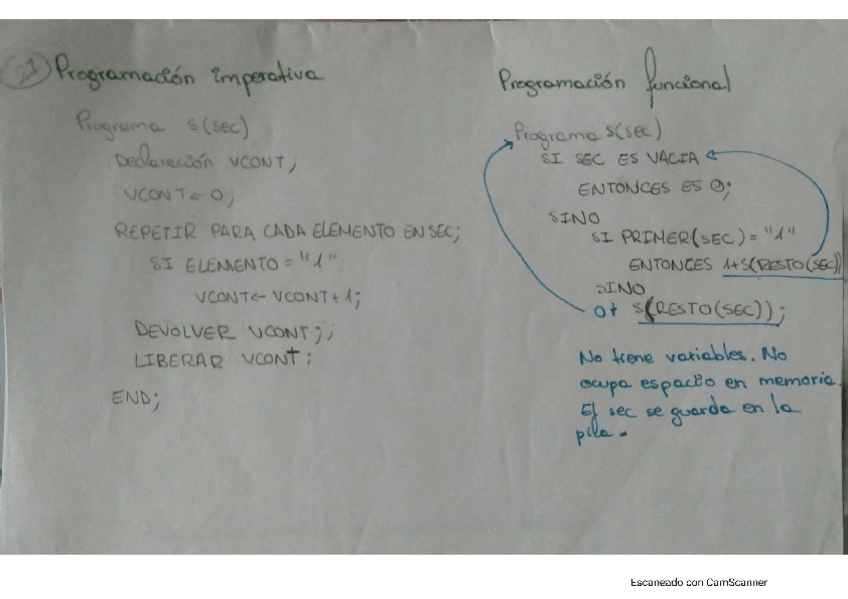 21 Programación imperativa
Programa s(sec)
Declaración VCONT;
VCONT←0;
REPETIR PARA CADA ELEMENTO EN SEC;
SI ELEMENTO = "1"
VCONT← VCONT+1;
DEVOLVER VCONT;;
LIBERAR VCONT;
END;
Programación funcional
Programa s(sec)
SI SEC ES VACIA
ENTONCES ES 0;
SINO
SI PRIMER(SEC) = "1"
ENTONCES 1+S(RESTO(SEC))
SINO
0+ S(RESTO(SEC));
No tiene variables. No
ocupa espacio en memoria.
El sec se guarda en la
pila.
Escaneado con CamScanner